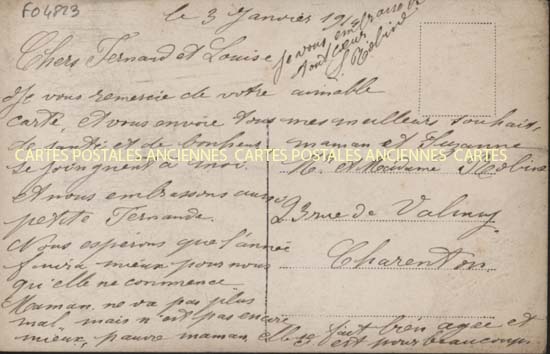 FO4823
le 3 Janvier 19
Je vous embrasse de
tout cœur
Chers Fernand et Louise
Je vous remercie de votre aimable
carte, et vous envoie tous mes meilleurs souhaits
de santé et de bonheur
maman et Suzanne
CARTES POSTALES ANCIENNES CARTES POSTALES ANCIENNES CARTES
se joignent à moi.
M. et Madame
Et nous embrassons aussi
petite Fernande.
23 rue de Valmy
Charenton
Nous espérons que l'année
finira mieux pour nous
qu'elle ne commence
Maman ne va pas plus
mal, mais n'est pas encore
mieux, pauvre maman, elle se fait bien agée et
c'est pour beaucoup.